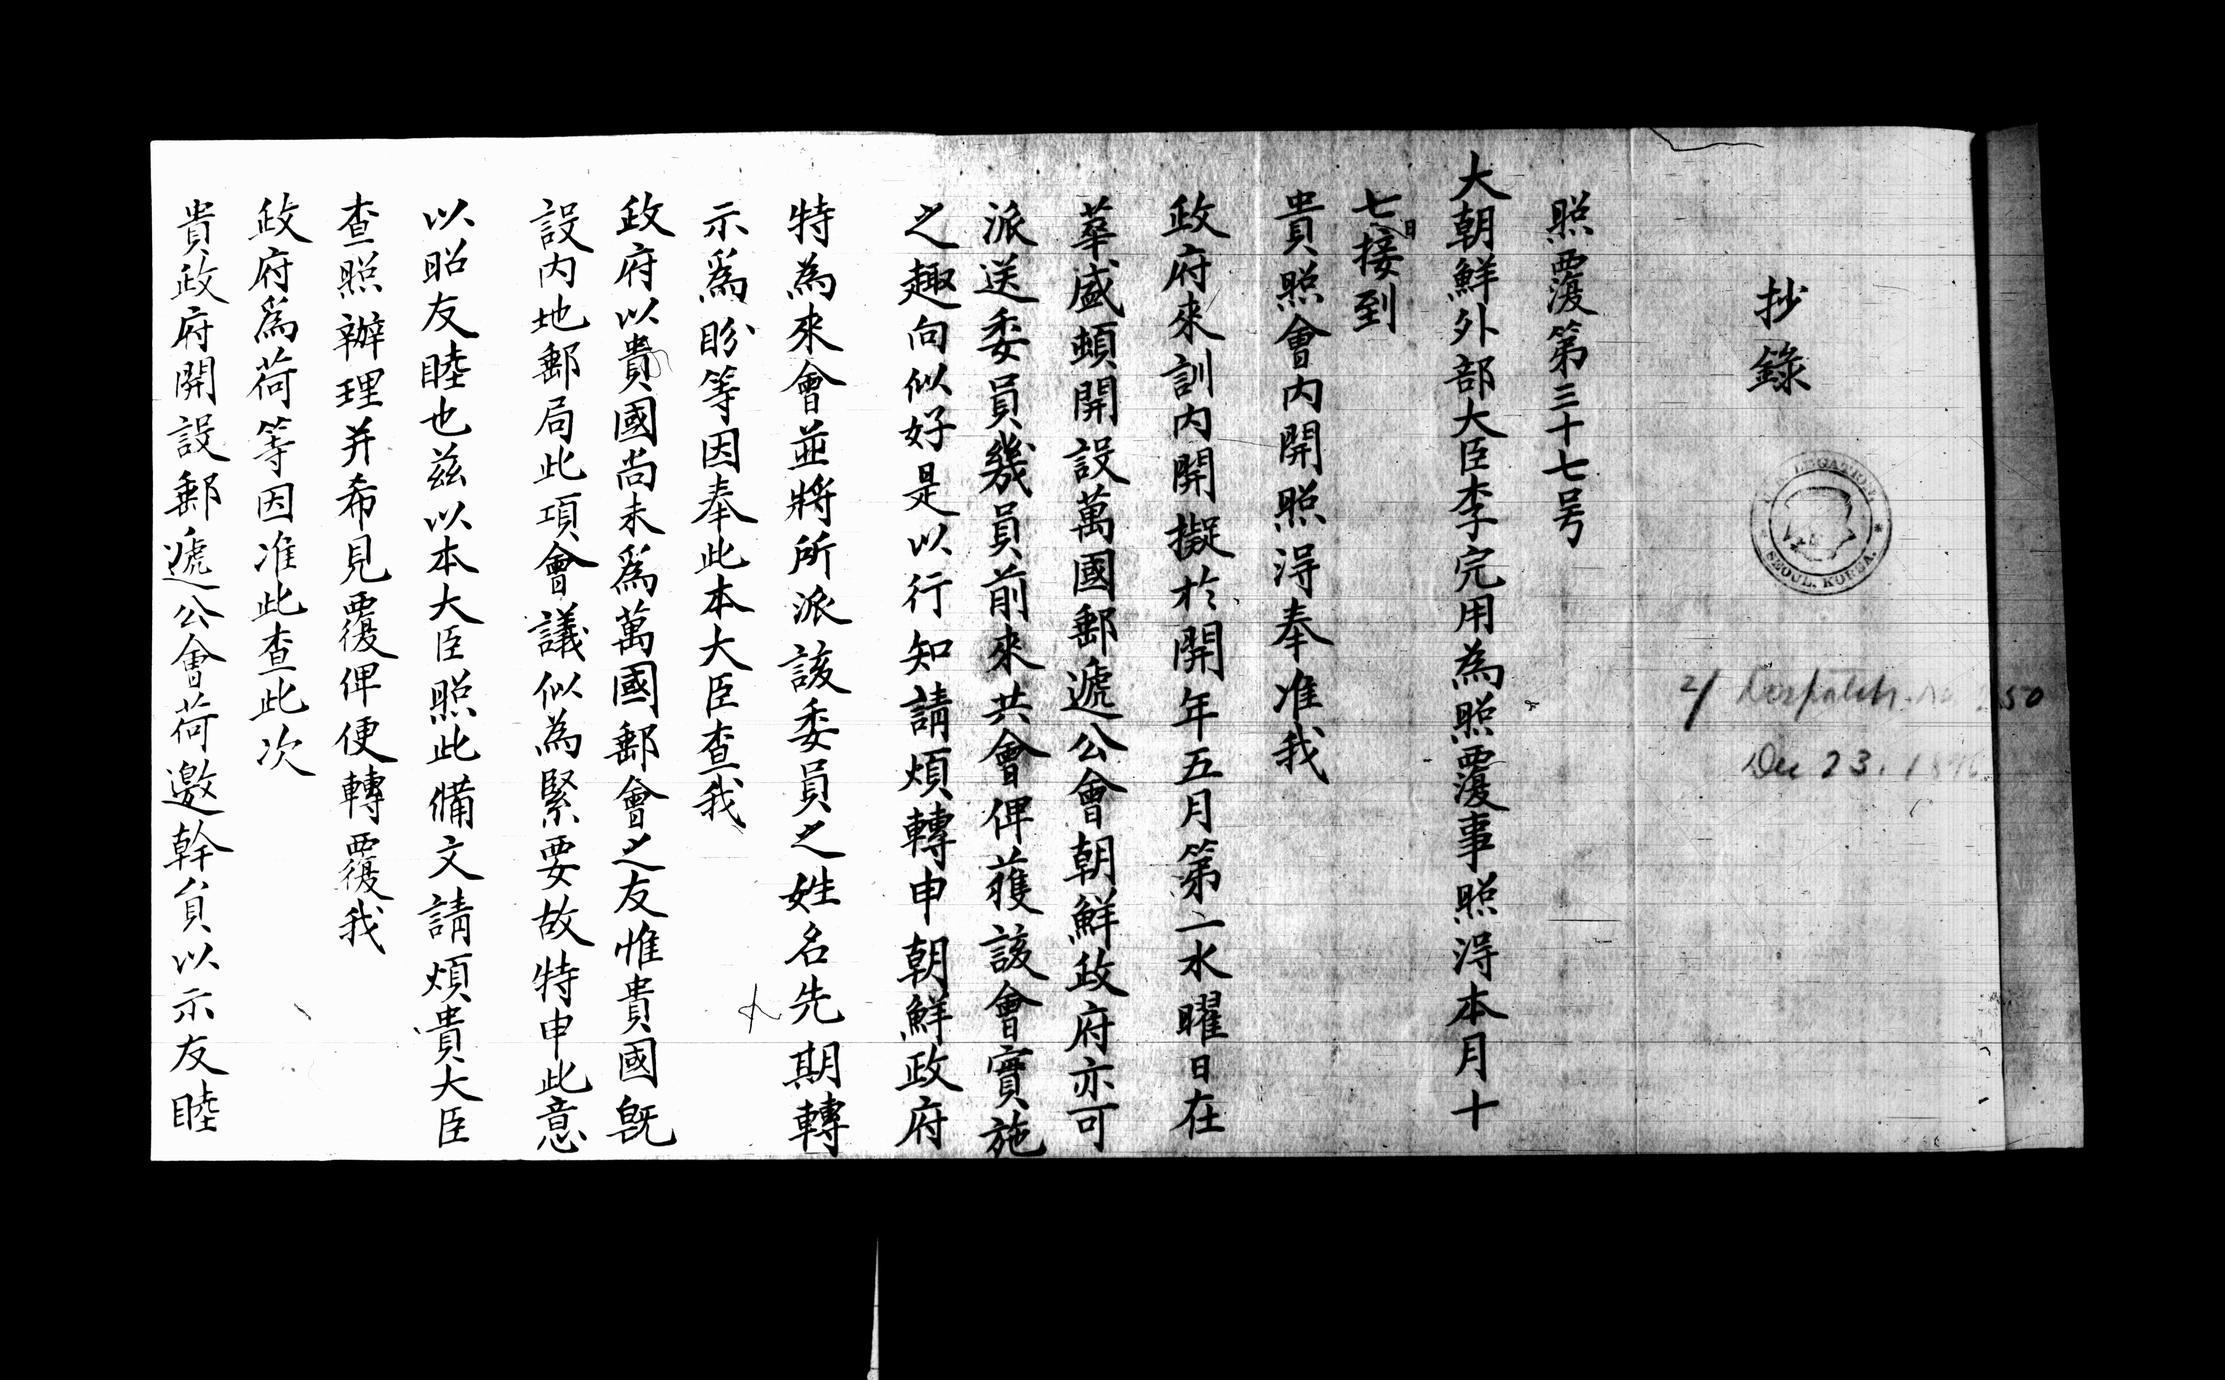 抄錄
LEGATION
SEOUL, KOREA.
2/ Despatch. No. 250
Dec 23. 1896
照覆第三十七号
大朝鮮外部大臣李完用為照覆事照淂本月十
七日接到
貴照會內開照淂奉准我
政府來訓內開擬於開年五月第一水曜日在
華盛頓開設萬國郵遞公會朝鮮政府亦可
派送委員幾員前來共會俾獲該會實施
之趣向似好是以行知請煩轉申朝鮮政府
特為來會並將所派該委員之姓名先期轉
示爲盼等因奉此本大臣查我
政府以貴國尚未爲萬國郵會之友惟貴國既
設内地郵局此項會議似為緊要故特申此意
以昭友睦也茲以本大臣照此備文請煩貴大臣
查照辦理并希見覆俾便轉覆我
政府爲荷等因准此查此次
貴政府開設郵遞公會荷邀幹員以示友睦